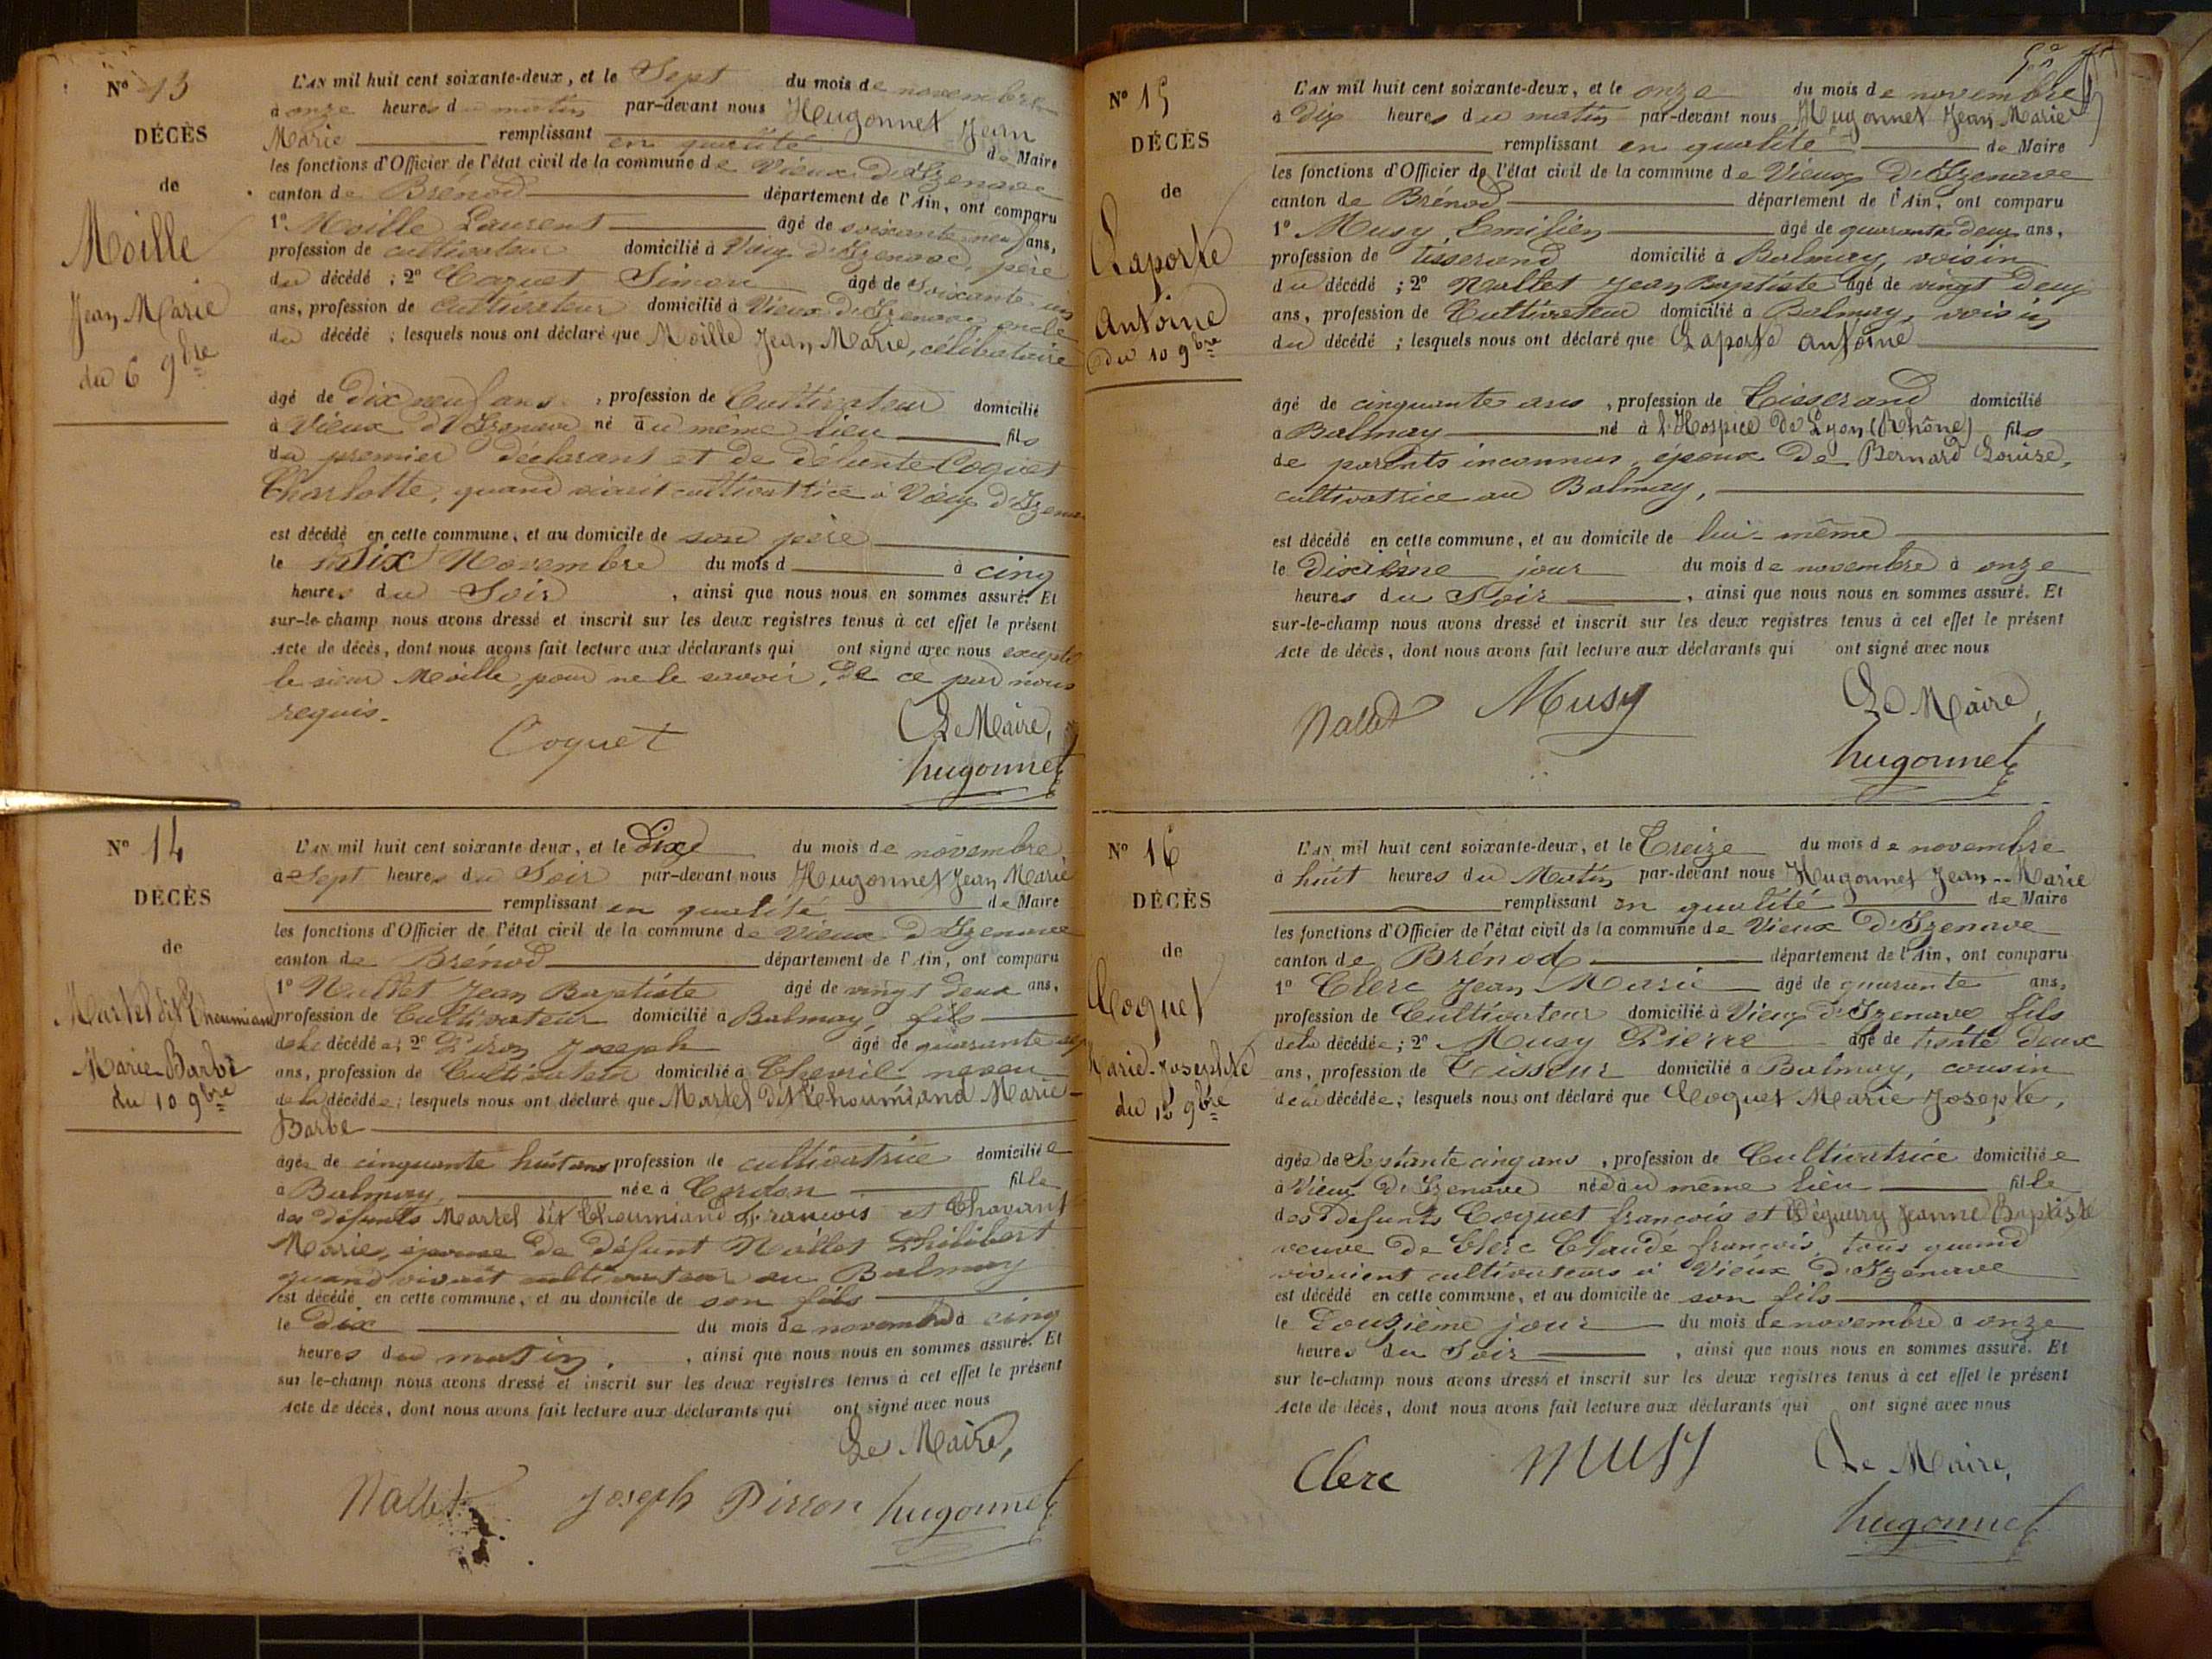 N° 13
DÉCÈS
de
Moille
Jean Marie
du 6 9bre
L'AN mil huit cent soixante-deux, et le Sept du mois de novembre
à onze heures du matin par-devant nous Hugonnet Jean
Marie remplissant en qualité de Maire
les fonctions d'Officier de l'état civil de la commune de Vieux d'Izenave
canton de Brénod département de l'Ain, ont comparu
1° Moille Laurent âgé de soixante neuf ans,
profession de cultivateur domicilié à Vieux d'Izenave, père
du décédé ; 2° Coquet Simon âgé de soixante un
ans, profession de Cultivateur domicilié à Vieux d'Izenave oncle
du décédé ; lesquels nous ont déclaré que Moille Jean Marie, célibataire
âgé de Dix neuf ans, profession de Cultivateur domicilié
à Vieux d'Izenave né au même lieu fils
du premier déclarant et de défunte Coquet
Charlotte, quand vivait cultivatrice à Vieux d'Izenave
est décédé en cette commune, et au domicile de son père
le Six Novembre du mois d à cinq
heures du Soir, ainsi que nous nous en sommes assuré. Et
sur-le-champ nous avons dressé et inscrit sur les deux registres tenus à cet effet le présent
Acte de décès, dont nous avons fait lecture aux déclarants qui ont signé avec nous excepté
le sieur Moille, pour ne le savoir, de ce par nous
requis.
Coquet
Le Maire,
hugonnet
N° 14
DÉCÈS
de
Martel dit Thoumiand
Marie Barbe
du 10 9bre
L'AN mil huit cent soixante deux, et le Dix du mois de novembre,
à Sept heures du Soir par-devant nous Hugonnet Jean Marie
remplissant en qualité de Maire
les fonctions d'Officier de l'état civil de la commune de Vieux d'Izenave
canton de Brénod département de l'Ain, ont comparu
1° Nallet Jean Baptiste âgé de vingt deux ans,
profession de Cultivateur domicilié à Balmay, fils
de la décédée; 2° Piron Joseph âgé de quarante
ans, profession de Cultivateur domicilié à Chevril neveu
de la décédée; lesquels nous ont déclaré que Martel Dit Thoumiand Marie-
Barbe
âgée de cinquante huit ans profession de cultivatrice domiciliée
à Balmay, née à Cerdon fille
des défunts Martel dit Thoumiand François et Chavant
Marie, épouse de défunt Nallet Philibert
quand vivait cultivateur au Balmay
est décédé en cette commune, et au domicile de son fils
le Dix du mois de novembre à cinq
heures du matin, ainsi que nous nous en sommes assuré. Et
sur le-champ nous avons dressé et inscrit sur les deux registres tenus à cet effet le présent
Acte de décès, dont nous avons fait lecture aux déclarants qui ont signé avec nous
Le Maire,
Nallet Joseph Pirron hugonnet
N° 15
DÉCÈS
de
Laporte
Antoine
du 10 9bre
L'AN mil huit cent soixante-deux, et le onze du mois de novembre
à Dix heures du matin par-devant nous Hugonnet Jean Marie
remplissant en qualité de Maire
les fonctions d'Officier de l'état civil de la commune de Vieux D'Izenave
canton de Brénod département de l'Ain, ont comparu
1° Musy Emilien âgé de quarante deux ans,
profession de tisserand domicilié à Balmay, voisin
du décédé ; 2° Nallet Jean Baptiste âgé de vingt deux
ans, profession de Cultivateur domicilié à Balmay, voisin
du décédé ; lesquels nous ont déclaré que Laporte Antoine
âgé de cinquante ans, profession de Tisserand domicilié
à Balmay né à l'Hospice de Lyon (Rhône) fils
de parents inconnus, époux de Bernard Louise,
cultivatrice au Balmay,
est décédé en cette commune, et au domicile de lui-même
le Dixième jour du mois de novembre à onze
heures du Soir, ainsi que nous nous en sommes assuré. Et
sur-le-champ nous avons dressé et inscrit sur les deux registres tenus à cet effet le présent
Acte de décès, dont nous avons fait lecture aux déclarants qui ont signé avec nous
Nallet Musy Le Maire,
hugonnet
N° 16
DÉCÈS
de
Coquet
Marie-Josephte
du 12 9bre
L'AN mil huit cent soixante-deux, et le Treize du mois de novembre
à huit heures du Matin par-devant nous Hugonnet Jean-Marie
remplissant en qualité de Maire
les fonctions d'Officier de l'état civil de la commune de Vieux D'Izenave
canton de Brénod département de l'Ain, ont comparu
1° Clerc Jean Marie âgé de quarante ans,
profession de Cultivateur domicilié à Vieux d'Izenave fils
de la décédée; 2° Musy Pierre âgé de trente deux
ans, profession de Tisseur domicilié à Balmay, cousin
de la décédée; lesquels nous ont déclaré que Coquet Marie Josepte,
âgée de Septante cinq ans, profession de Cultivatrice domiciliée
à Vieux D'Izenave née au même lieu fille
des défunts Coquet françois et Déguerry Jeanne Baptiste
veuve de Clerc Claude françois, tous quand
vivaient cultivateurs à Vieux D'Izenave
est décédé en cette commune, et au domicile de son fils
le Douzième jour du mois de novembre à onze
heures du Soir, ainsi que nous nous en sommes assuré. Et
sur le-champ nous avons dressé et inscrit sur les deux registres tenus à cet effet le présent
Acte de décès, dont nous avons fait lecture aux déclarants qui ont signé avec nous
Clerc Musy Le Maire,
hugonnet